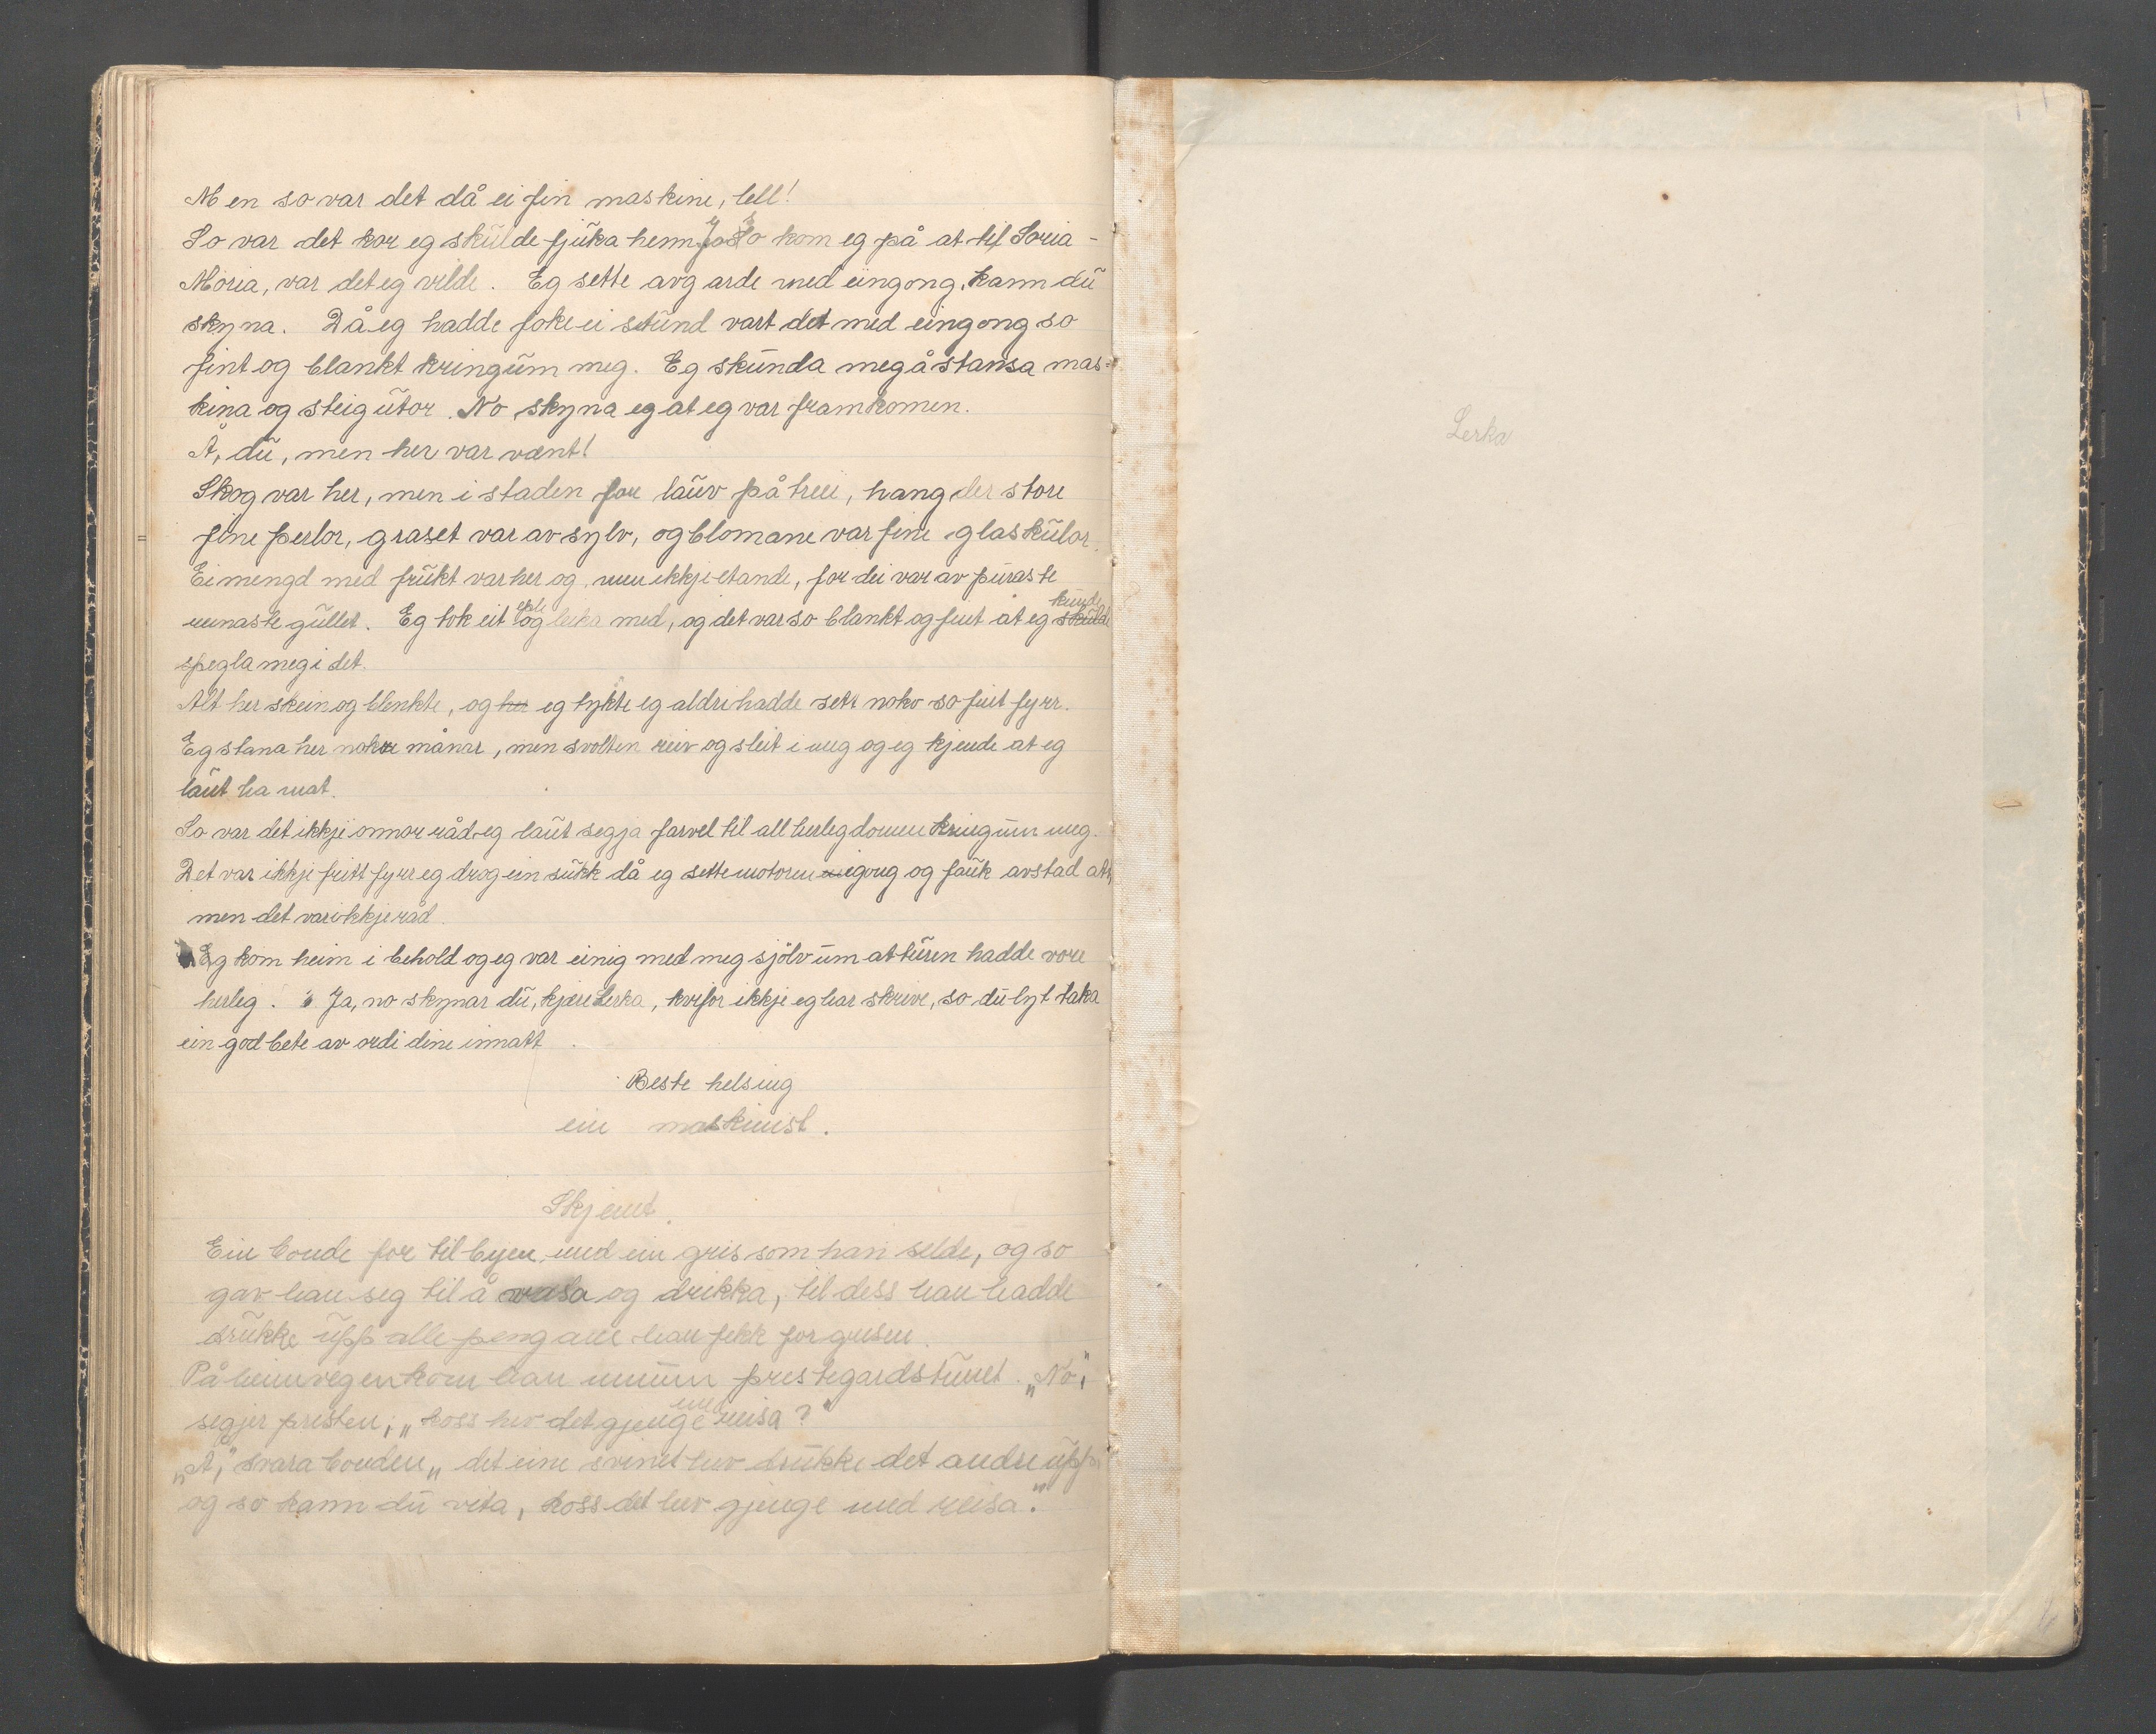 Men so var det då ei fin maskine, lell!
So var det kor eg skulde fjuka henn. Jo so kom eg på at til Soria-
Moria, var det eg vilde. Eg sette avgarde med eingong, kann du
skyna. Då eg hadde foke ei stund vart det med eingong so
fint og blankt kringum meg. Eg skunda meg å stansa mas-
kina og steig utor. No skyna eg at eg var framkomen.
Å, du, men her var vænt!
Skog var her, men i staden for lauv på treei, hang der store
fine perlor, graset var av sylv, og blomane var fine glaskulor.
Ei mengd med frukt var her og, men ikkje etande, for dei var av puraste
reinaste gullet. Eg tok eit eple og leika med, og det var so blankt og feint at eg skulde kunde
spegla meg i det.
Alt her skein og blenkte, og her eg tykte eg aldri hadde sett nokv so feit fyrr.
Eg stana her nokre månar, men svolten reiv og sleit i meg og eg kjende at eg
laut ha mat.
So var det ikkje onnor råd, eg laut segja farvel til all herlegdomen kringum meg.
Det var ikkje fritt fyrr eg drog ein sukk då eg sette motoren igong og fauk avstad att,
men det var ikkje råd.
Eg kom heim i behold og eg var einig med meg sjölv um at turen hadde vore
herleg. Ja, no skynar du, kjære Lerka, kvifor ikkje eg har skrive, so du lyt taka
ein god bete av ordi dine innatt.
Beste helsing
ein maskinist.
Skjemt.
Ein bonde for til byen med ein gris som han selde, og so
gav han seg til å rasa og drikka, til dess han hadde
drukke upp alle pengane han fekk for grisen.
På heimvegen kom han innum prestegardstunet. "No",
segjer presten, "koss hev det gjenge med reisa?"
"Å," svara bonden, "det eine svinet hev drukke det andre upp,
og so kann du vita, koss det hev gjenge med reisa."
Lerka